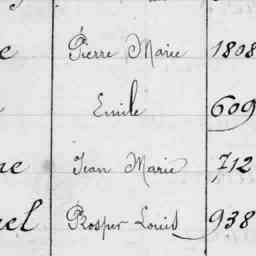 e Pierre Marie 1808
Emile 609
ne Jean Marie 712
rel Prosper Louis 938